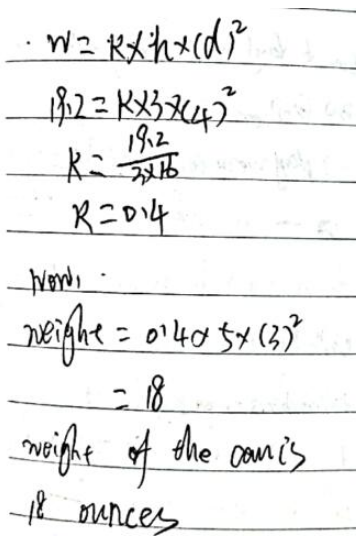 . W = K×h×(d)²
19.2 = K×3×(4)²
K = 19.2
3×16
K = 0.4
Now,
weight = 0.4×5×(3)²
= 18
weight of the can is
18 ounces